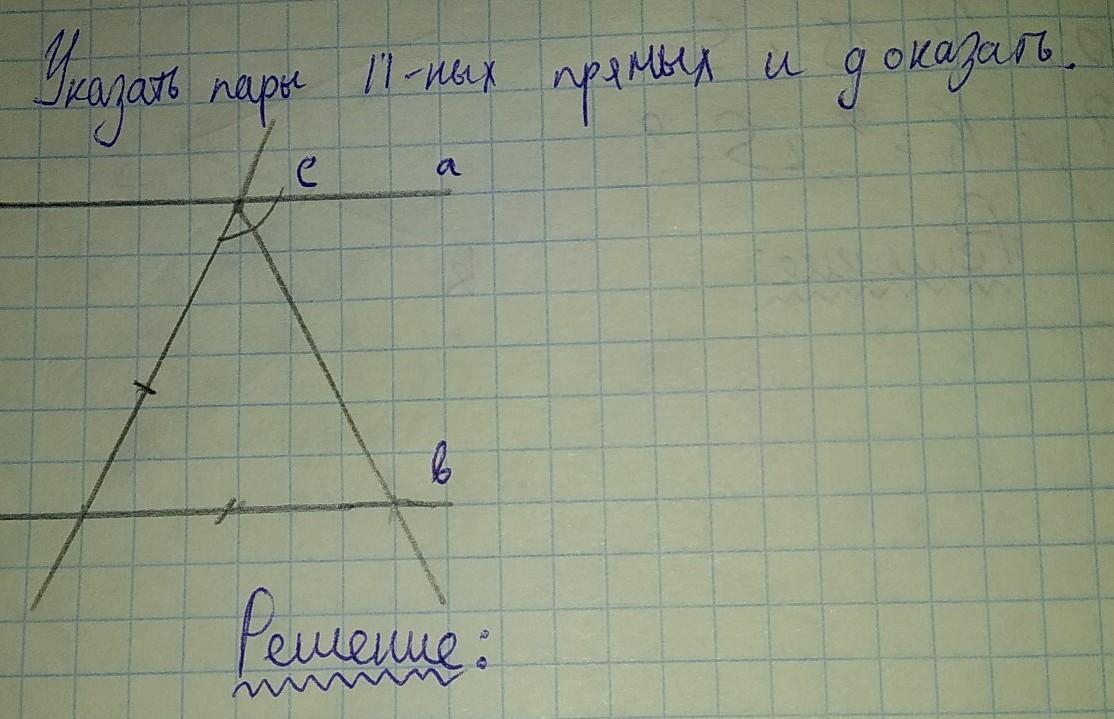 Указать пары 11-ных прямых и доказать.
с а
в
Решение: